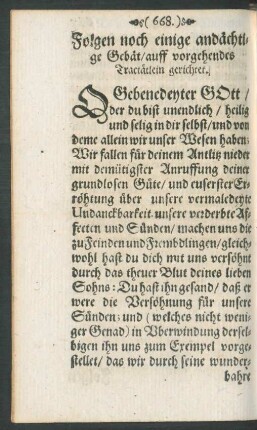 ( 668. )
Folgen noch einige andächti-
ge Gebät/auff vorgehendes
Tractätlein gerichtet.
O Gebenedeyter GOtt /
der du bist unendlich / heilig
und selig in dir selbst/und von
deme allein wir unser Wesen haben:
Wir fallen für deinem Antlitz nieder
mit demütigster Anruffung deiner
grundlosen Güte/ und euserster Er-
röhtung über unsere vermaledeyte
Undanckbarkeit unsere verderbte Af-
fecten und Sünden/ machen uns die
zu Feinden und Frembdlingen/ gleich-
wohl hast du dich mit uns versöhnt
durch das theuer Blut deines lieben
Sohns: Du hast ihn gesand/ daß er
were die Versöhnung für unsere
Sünden; und ( welches nicht weni-
ger Genad) in Vberwindung dersel-
bigen ihn uns zum Exempel vorge-
stellet/ das wir durch seine wunder-
bahre